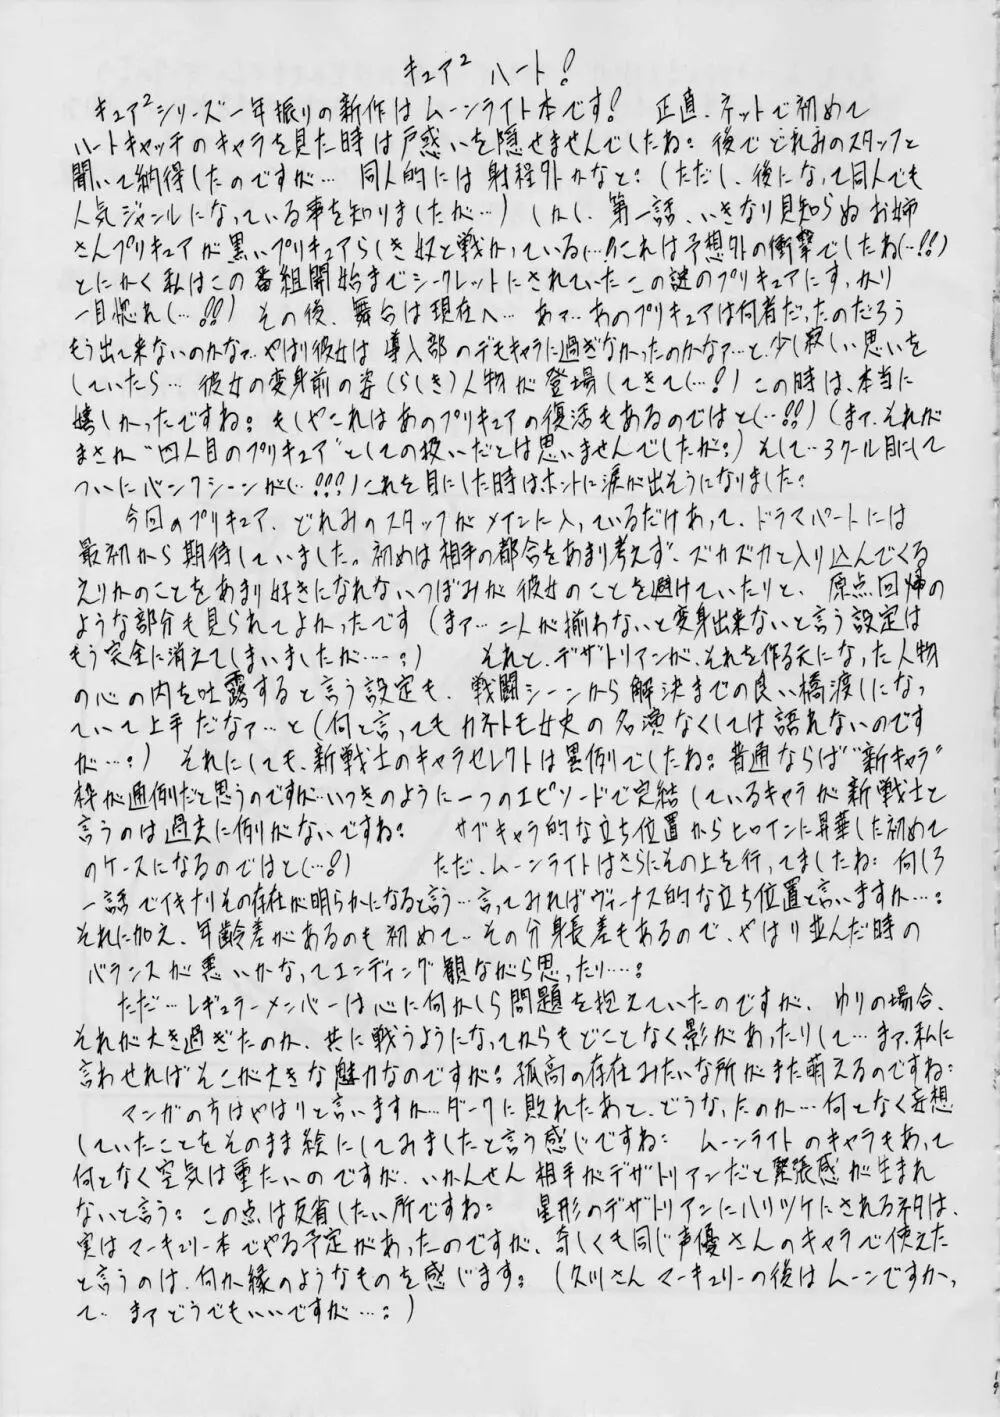 キュア² ハート!
キュア²シリーズ一年振りの新作はムーンライト本です! 正直、ネットで初めて
ハートキャッチのキャラを見た時は戸惑いを隠せませんでしたね。後でどれみのスタッフと
聞いて納得したのですが… 同人的には射程外かなと。(ただし、後になって同人でも
人気ジャンルになっている事を知りましたが…) しかし、第一話、いきなり見知らぬお姉
さんプリキュアが黒いプリキュアらしき奴と戦かっている(…!)これは予想外の衝撃でしたね(…!!)
とにかく私はこの番組開始までシークレットにされていたこの謎のプリキュアにすっかり
一目惚れ(…!!) その後、舞台は現在へ… あァ…あのプリキュアは何者だったのだろう
もう出て来ないのかなァ…やはり彼女は導入部のデモキャラに過ぎなかったのかなァ…と少し寂しい思いを
していたら… 彼女の変身前の姿(らしき)人物が登場してきて(…!) この時は、本当に
嬉しかったですね。もしやこれはあのプリキュアの復活もあるのではと(…!!) (まァ、それが
まさか“四人目のプリキュア”としての扱いだとは思いませんでしたが。) そして…3クール目にして
ついにバンクシーンが(…!!!)これを目にした時はホントに涙が出そうになりました。
今回のプリキュア、どれみのスタッフがメインに入っているだけあって、ドラマパートには
最初から期待していました。初めは相手の都合をあまり考えず、ズカズカと入り込んでくる
えりかのことをあまり好きになれないつぼみが彼女のことを避けていたりと、原点回帰の
ような部分も見られてよかったです (まァ…二人が揃わないと変身出来ないと言う設定は
もう完全に消えてしまいましたが……。) それと、デザトリアンが、それを作る元になった人物
の心の内を吐露すると言う設定も、戦闘シーンから解決までの良い橋渡しになっ
ていて上手だなァ…と (何と言ってもカネトモ女史の名演なくしては語れないのです
が…。) それにしても、新戦士のキャラセレクトは異例でしたね。普通ならば“新キャラ”
枠が通例だと思うのですが…いつきのように一つのエピソードで完結しているキャラが新戦士と
言うのは過去に例がないですね。 サブキャラ的な立ち位置からヒロインに昇華した初めて
のケースになるのではと(…!) ただ、ムーンライトはさらにその上を行ってましたね。何しろ
一話でイキナリその存在が明らかになると言う…言ってみればヴィーナス的な立ち位置と言いますか…。
それに加え、年齢差があるのも初めて…その分身長差もあるので、やはり並んだ時の
バランスが悪いかなってエンディング観ながら思ったり…。
ただ…レギュラーメンバーは心に何かしら問題を抱えていたのですが、ゆりの場合、
それが大き過ぎたのか、共に戦うようになってからもどことなく影があったりして…まァ、私に
言わせればそこが大きな魅力なのですが。孤高の存在みたいな所がまた萌えるのですね。
マンガの方はやはりと言いますか…ダークに敗れたあと、どうなったのか…何となく妄想
していたことをそのまま絵にしてみましたと言う感じですね。 ムーンライトのキャラもあって
何となく空気は重たいのですが、いかんせん相手がデザトリアンだと緊張感が生まれ
ないと言う。この点は反省したい所ですね。 星形のデザトリアンにハリツケにされるネタは、
実はマーキュリー本でやる予定があったのですが、奇しくも同じ声優さんのキャラで使えた
と言うのは、何か縁のようなものを感じます。 (久川さんマーキュリーの後はムーンですかっ
て… まァどうでもいいですが…。)